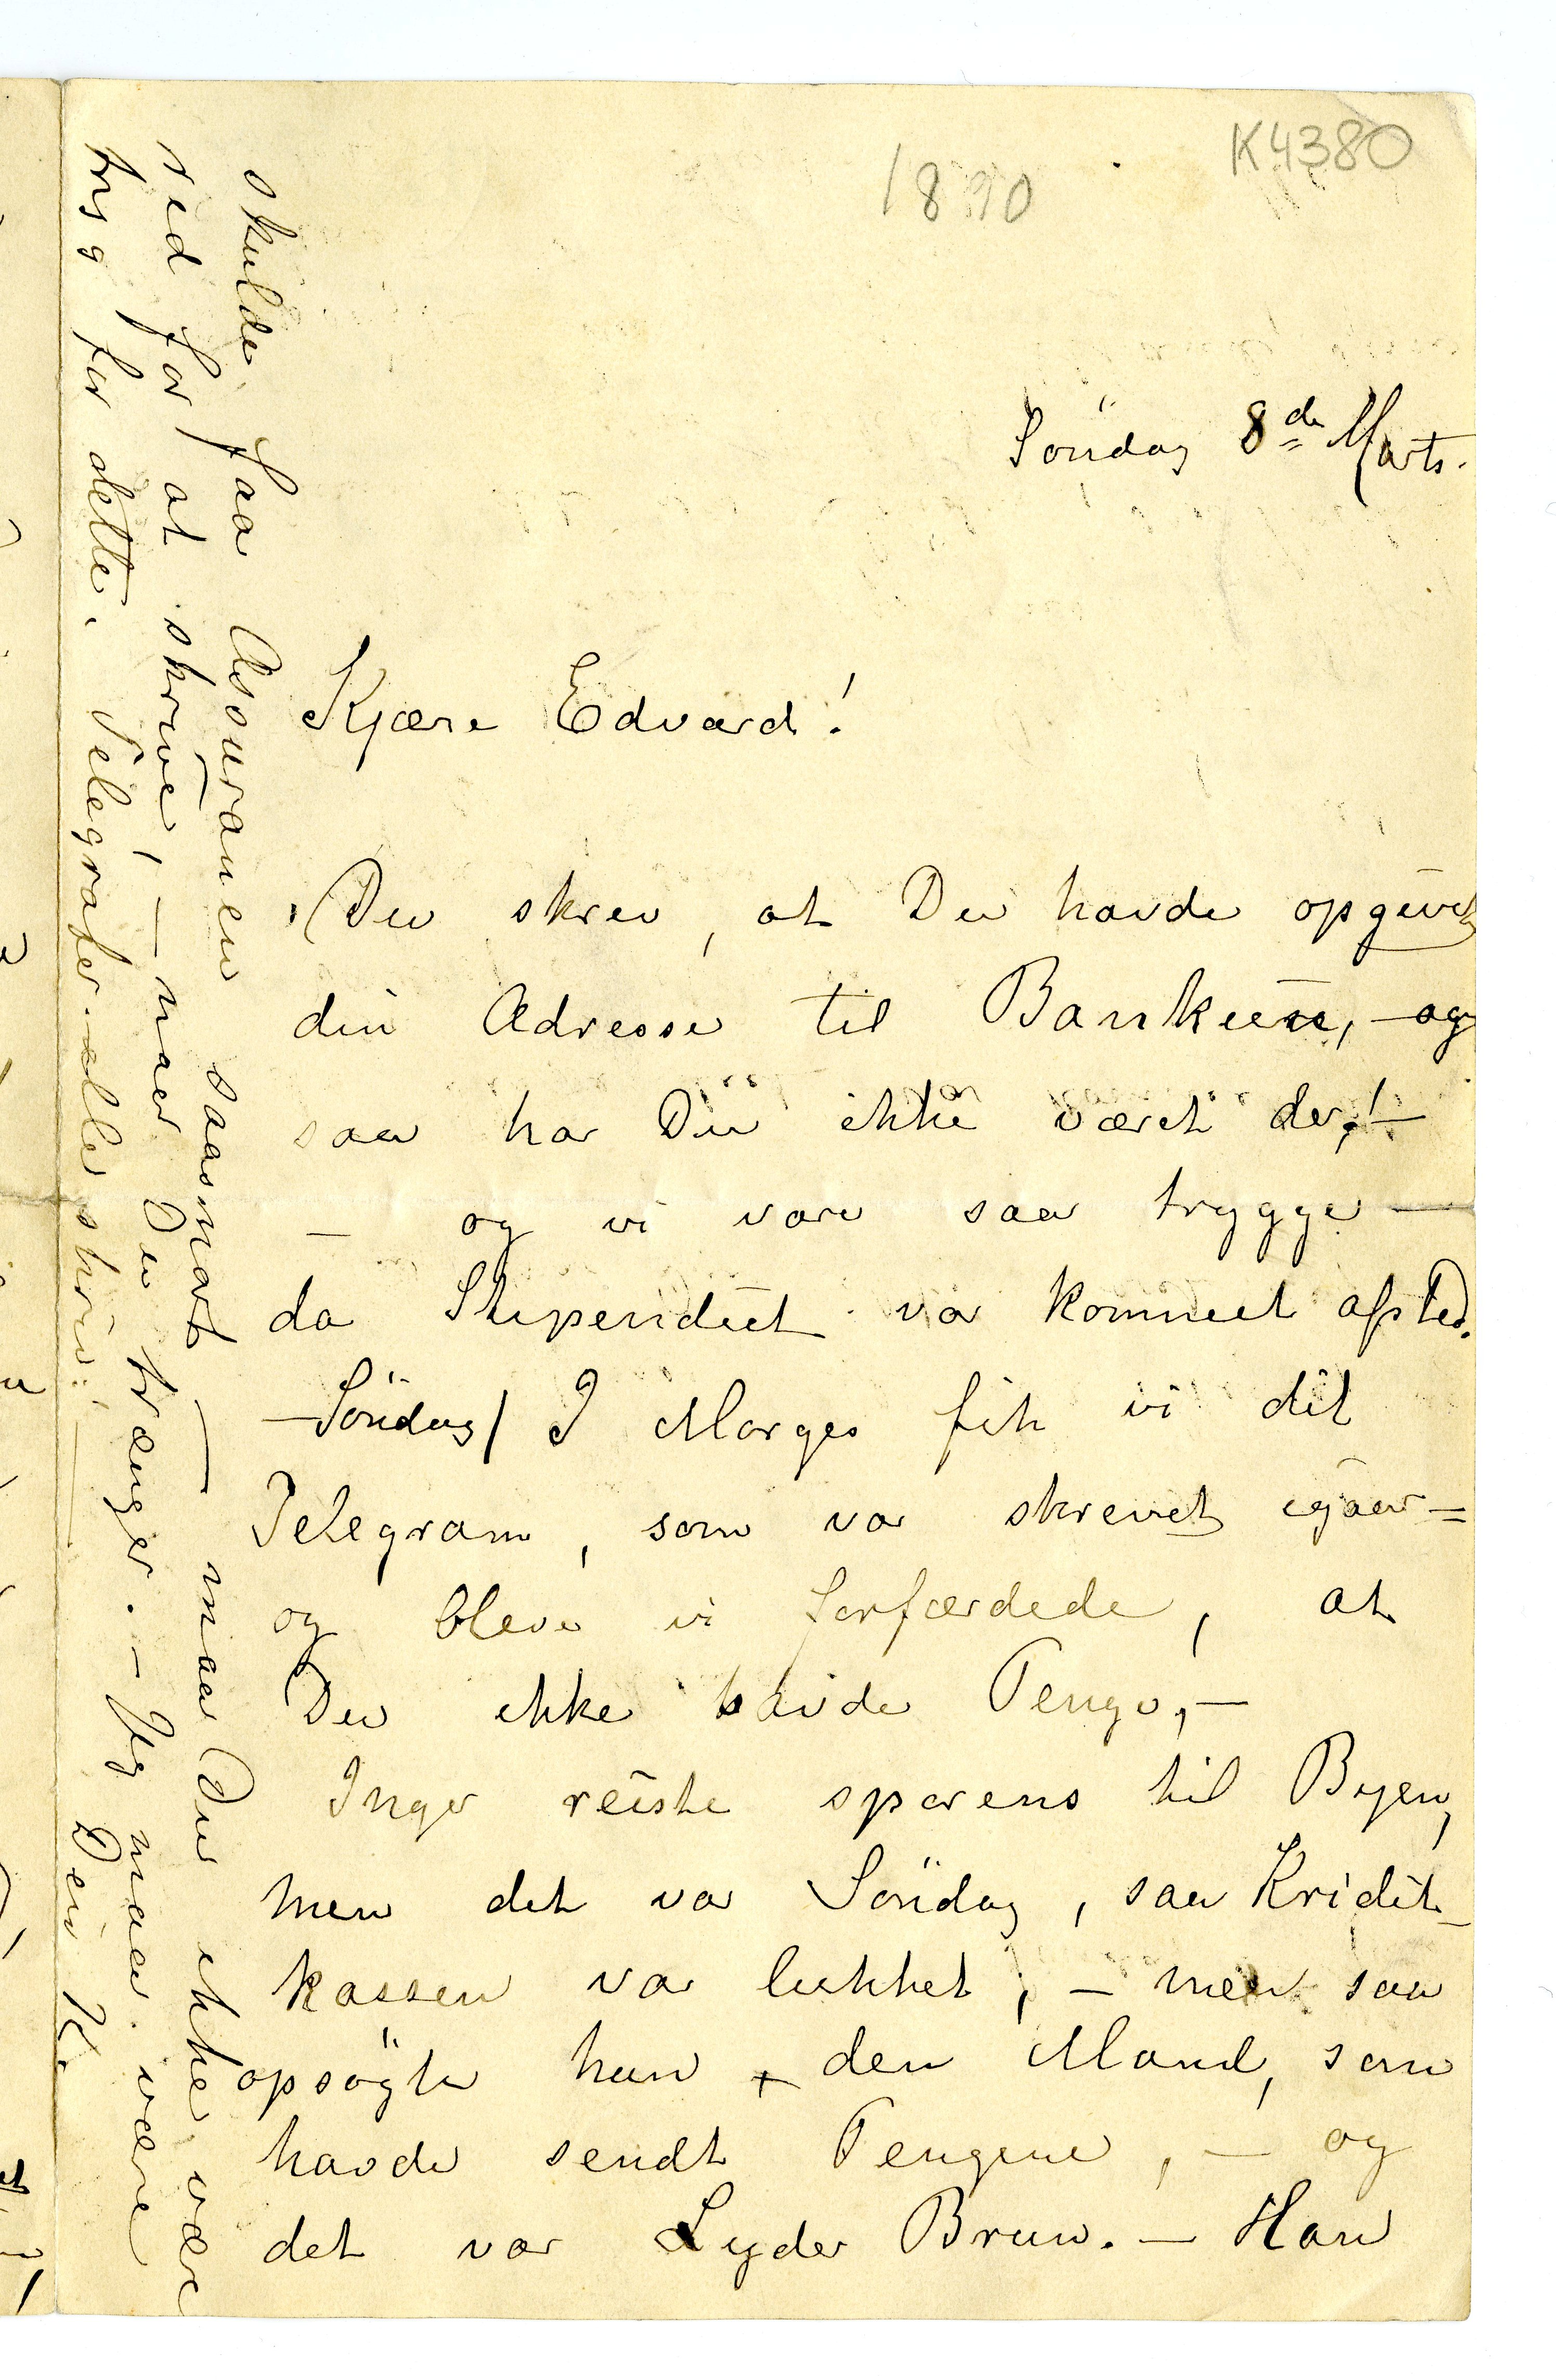 K4380
1890
Söndag 8de Marts.
Kjære Edvard!
Du skrev, at Du havde opgivet
din Adresse til Banken, – og
saa har Du ikke været der,! –
– og vi vare saa trygge –
da Stipendiet var kommet afsted.
– Söndag / I Morges fik vi dit
Telegram, som var skrevet igaar =
og bleve vi forfærdede, at
Du ikke havde Penge, –
Inger reiste sporens til Byen,
men det var Söndag, saa Kridit-
kassen var lukket, – men saa
opsögte hun den Mand, som
havde sendt Pengene, – og
det var Lyder Brun. – Han
skulde faa Assuranen saasnart – maa Du ikke være
red for at skrive, – naar Du trænger. – Jeg maa være
tryg for dette. Telegrafer eller skriv. – Din K.